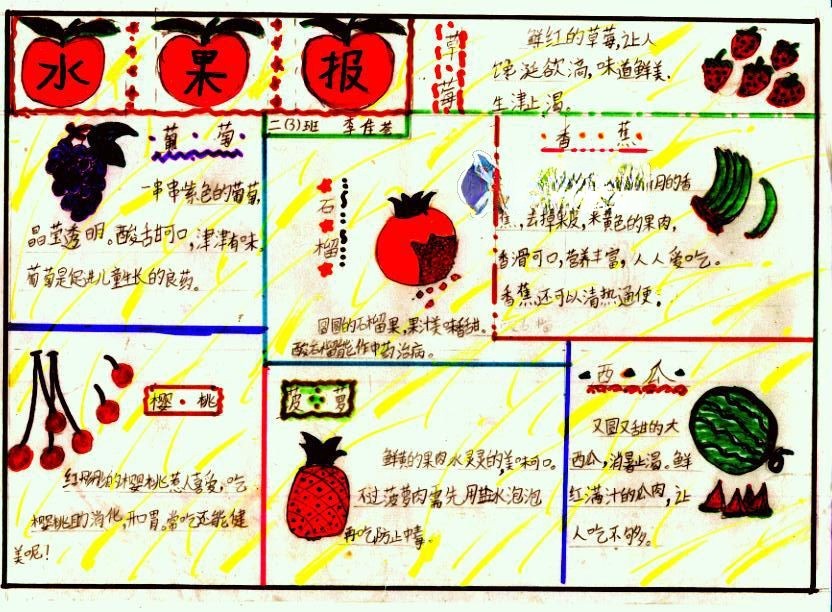 水果报
二(3)班 李佳
草莓
鲜红的草莓,让人
馋涎欲滴,味道鲜美,
生津止渴。
葡萄
一串串紫色的葡萄,
晶莹透明。酸甜可口,津津有味,
葡萄是促进儿童生长的良药。
石榴
圆圆的石榴果,果美味香甜。
酸石榴能作中药治病。
香蕉
月的香
蕉,去掉果皮,米黄色的果肉,
香滑可口,营养丰富,人人爱吃。
香蕉还可以清热通便;
樱桃
红彤彤的樱桃惹人喜爱,吃
樱桃助消化,开胃。常吃还能健
美呢!
菠萝
鲜黄的果肉水灵灵的美味可口。
不过菠萝肉需先用盐水泡泡
再吃防止中毒.
西瓜
又圆又甜的大
西瓜,消暑止渴。鲜
红满汁的瓜肉,让
人吃不够。